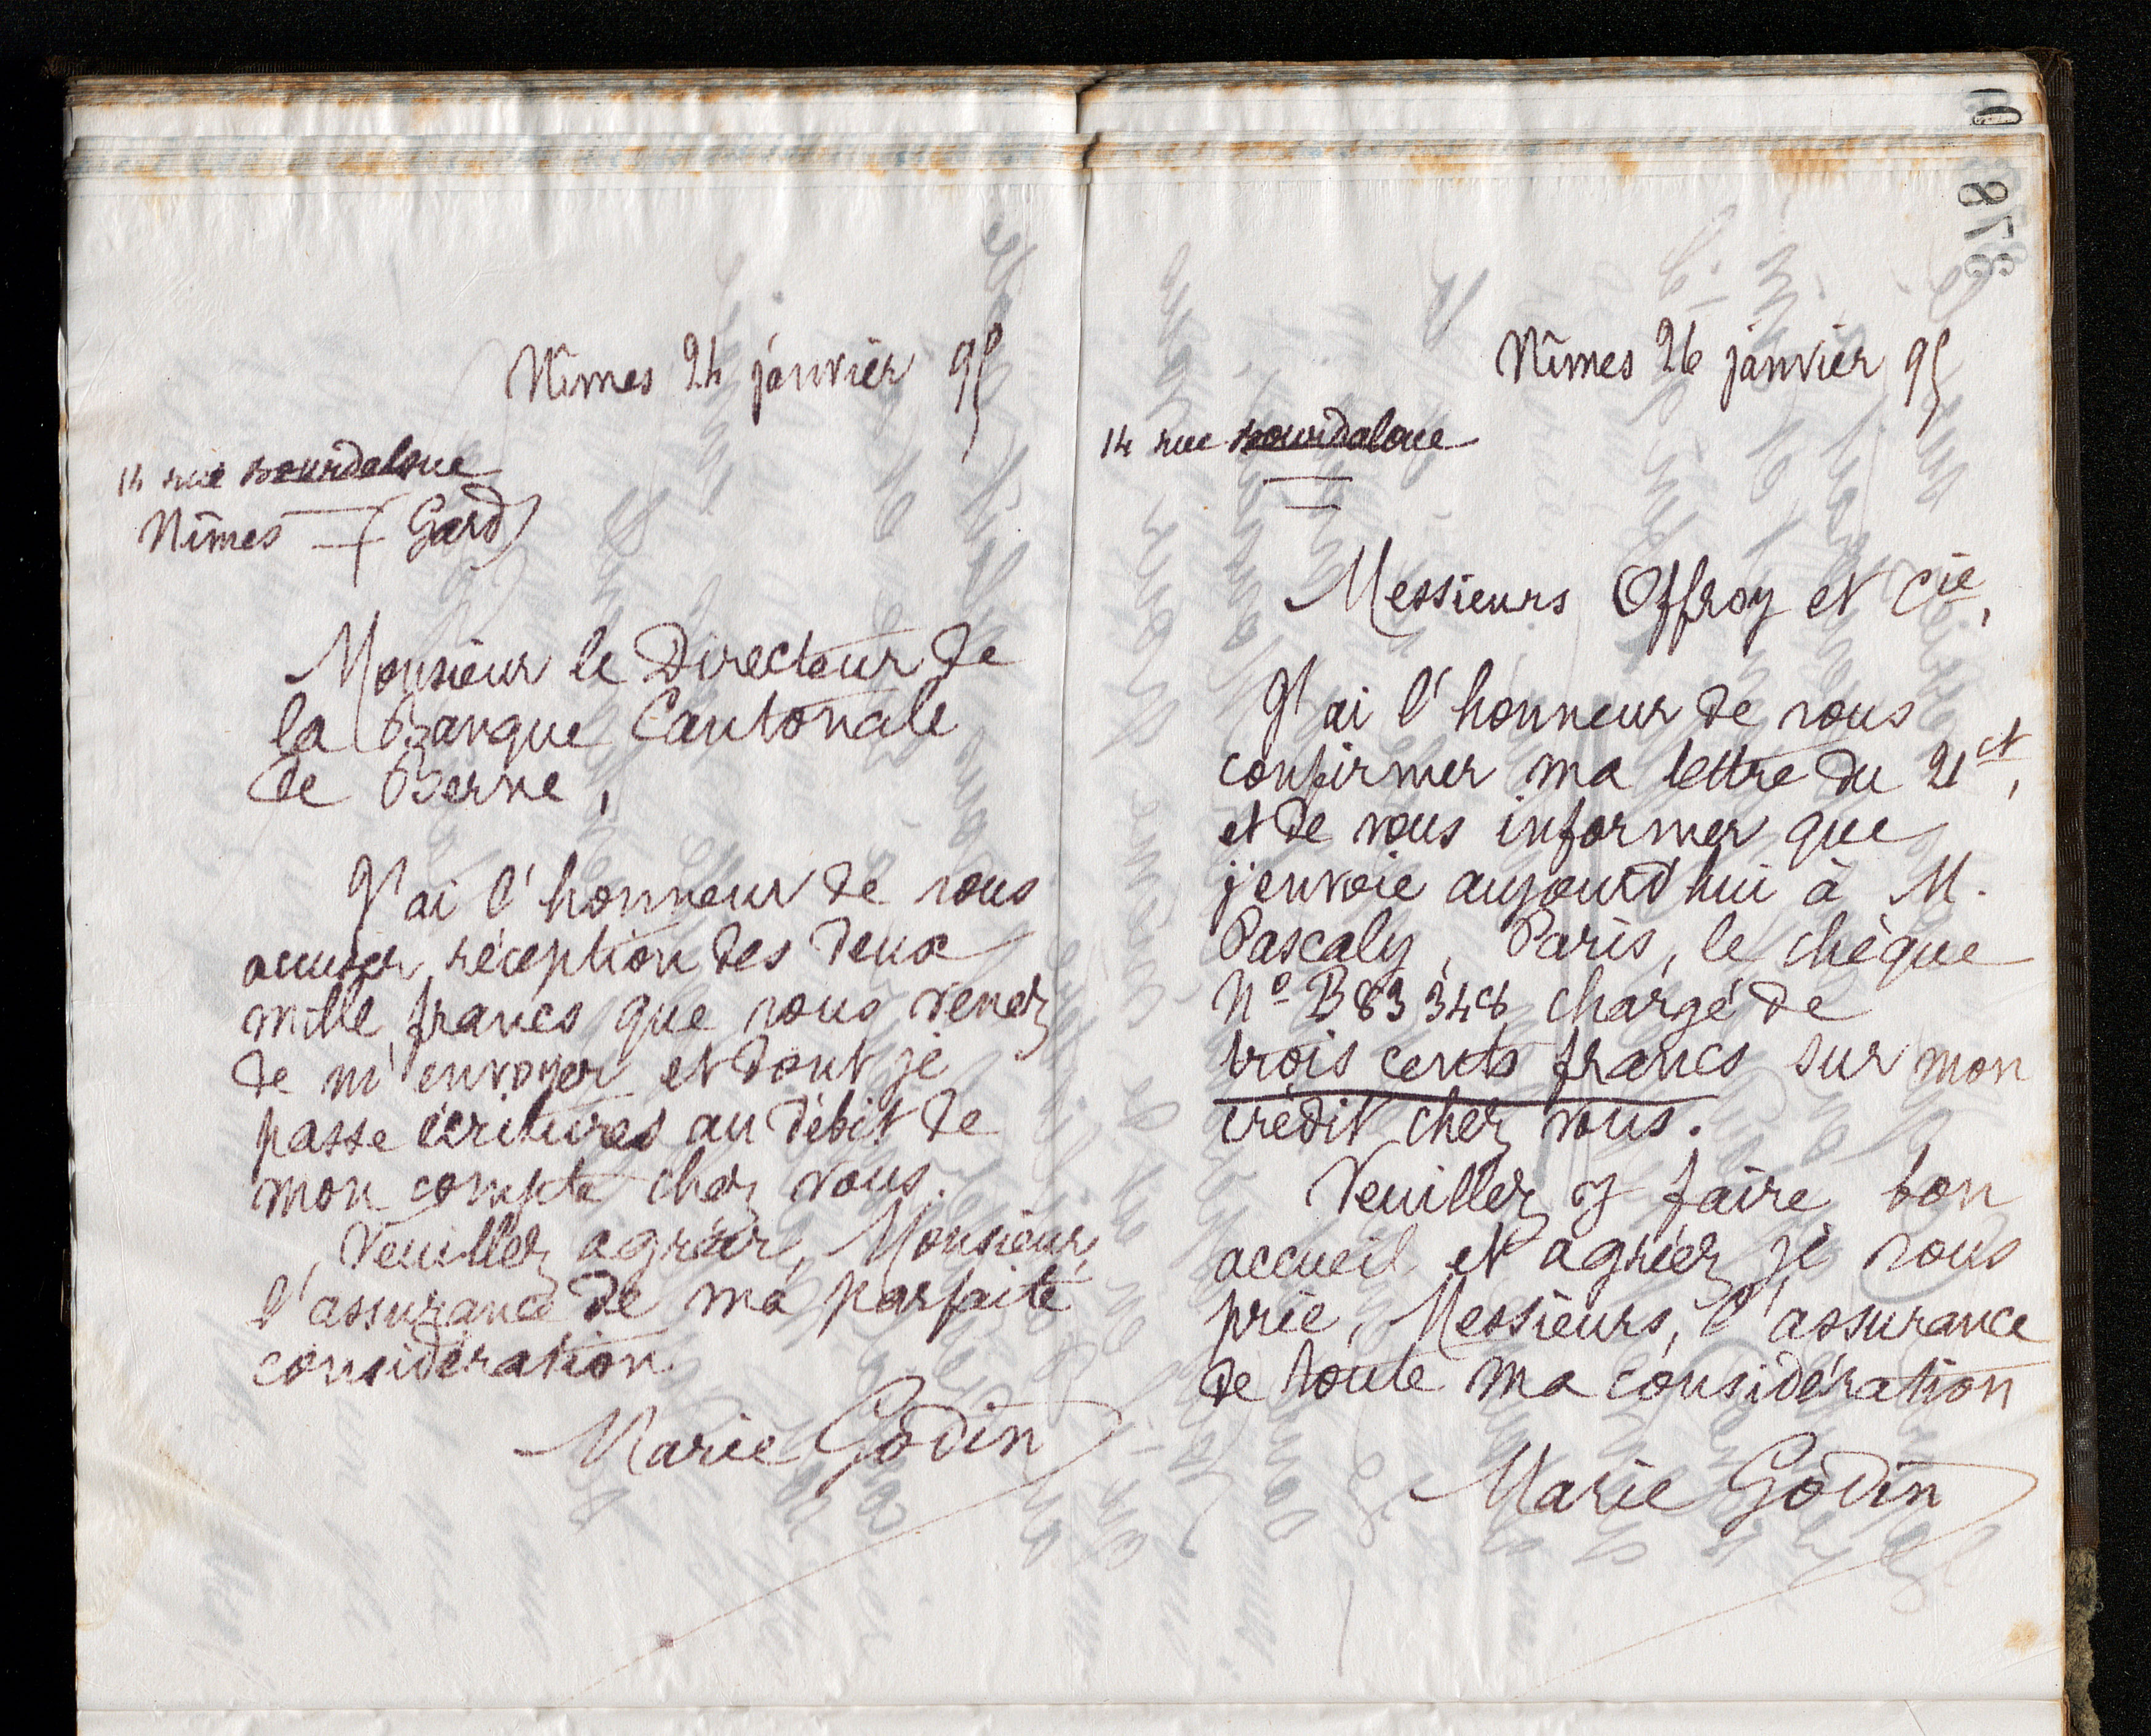 Nîmes 24 janvier 95
14 rue Bourdaloue
Nîmes (Gard)
Monsieur le Directeur de
la Banque Cantonale
de Berne,
J'ai l'honneur de vous
accuser réception des deux
mille francs que vous venez
de m'envoyer et dont je
passe écritures au débit de
mon compte chez vous.
Veuillez agréer, Monsieur,
l'assurance de ma parfaite
considération
Marie Godin
878
Nîmes 26 janvier 95
14 rue Bourdaloue
Messieurs Offroy et Cie,
J'ai l'honneur de vous
confirmer ma lettre du 21 ct,
et de vous informer que
j'envoie aujourd'hui à M.
Pascaly, Paris, le chèque
No B 83348 chargé de
trois cents francs sur mon
crédit chez vous.
Veuillez y faire bon
accueil et agréer, je vous
prie, Messieurs, l'assurance
de toute ma considération
Marie Godin